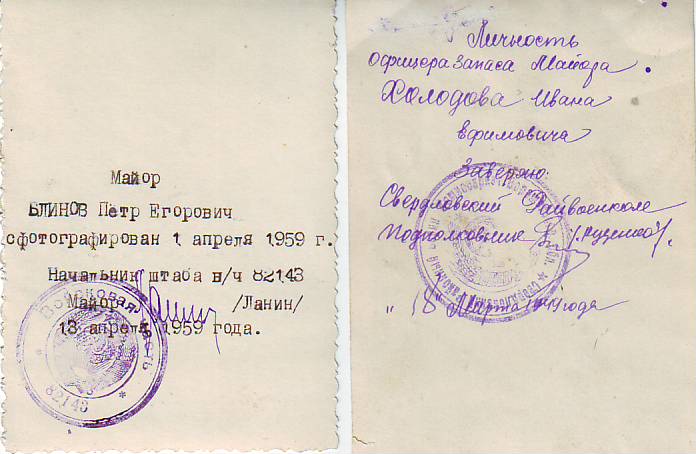 Майор
БЛИНОВ Петр Егорович
сфотографирован 1 апреля 1959 г.
Начальник штаба в/ч 82143
Майор /Ланин/
13 апреля 1959 года.
Войсковая часть
82143
Личность
офицера запаса Майора
Холодова Ивана
Ефимовича
Заверяю:
Свердловский Райвоенком
Подполковник
"18" Марта года